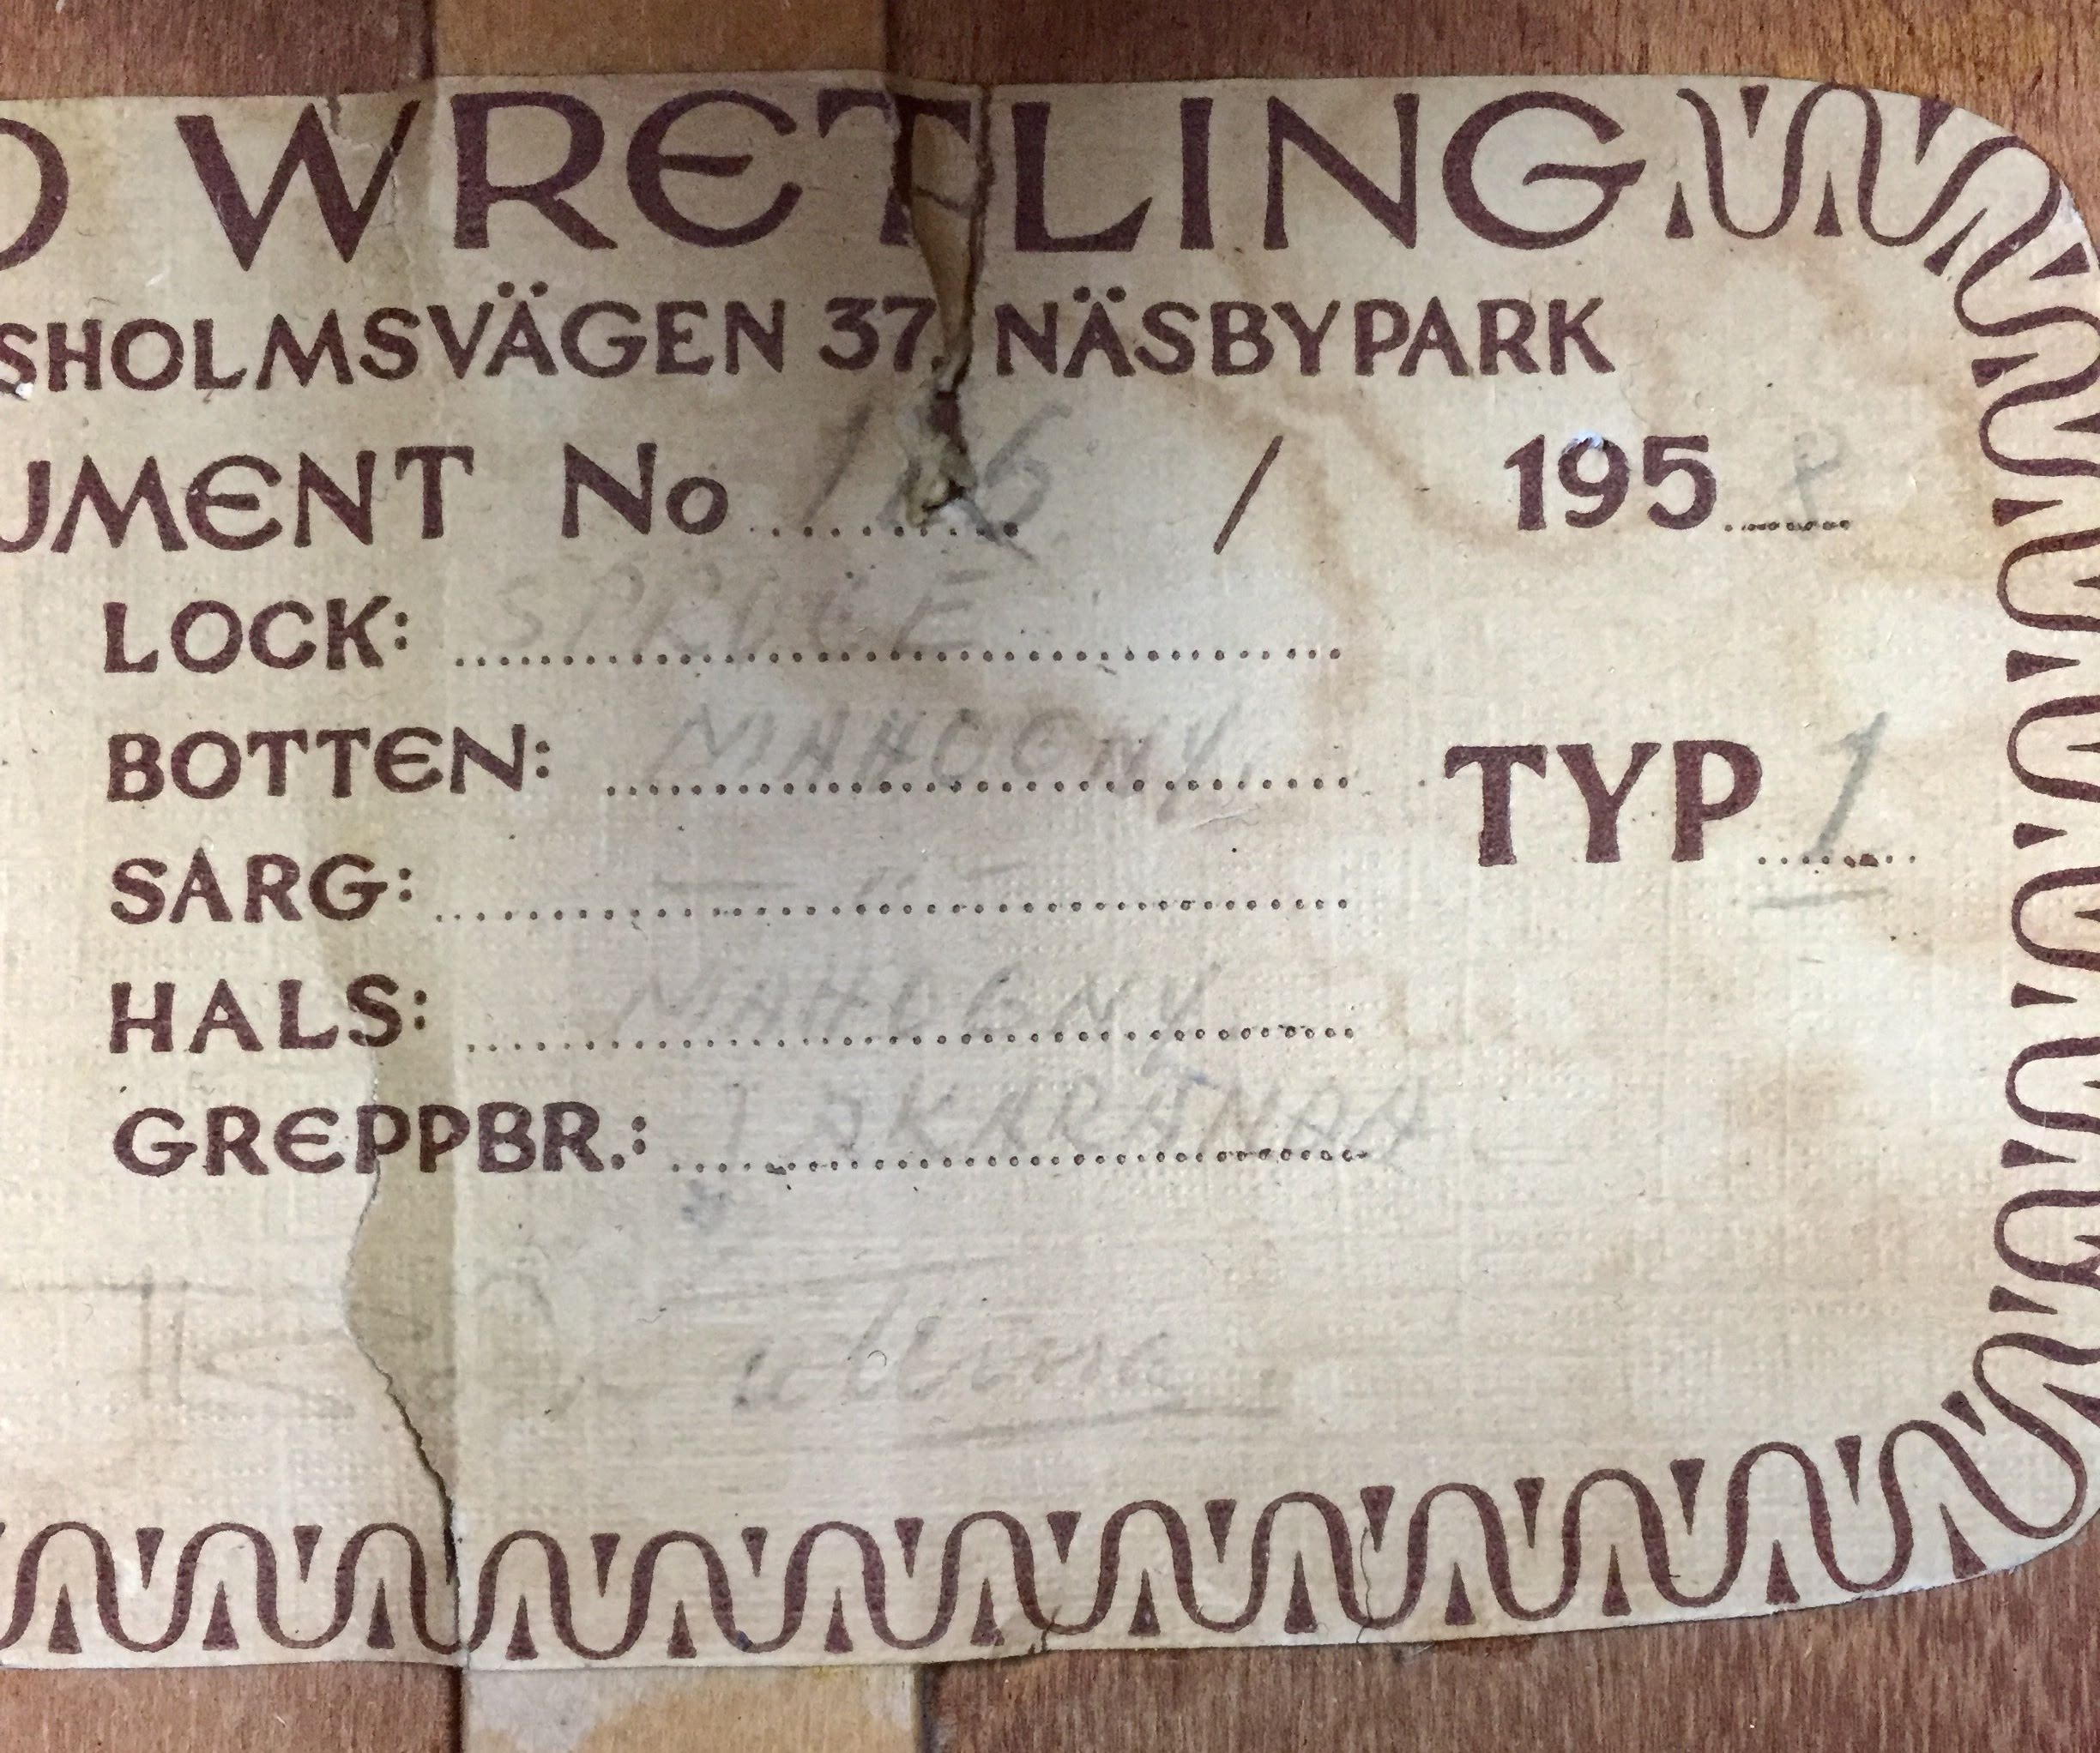 D WRETLING
SHOLMSVÄGEN 37, NÄSBYPARK
UMENT No / 1958
LOCK: SPRUCE
BOTTEN: MAHOGNY
SARG: — " —
HALS: MAHOGNY
GREPPBR.: JAKARANDA
TYP 1